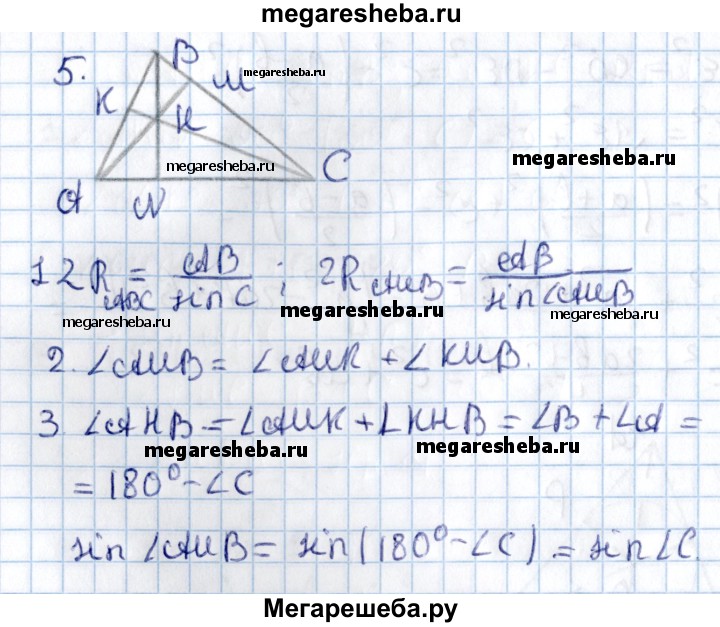 megaresheba.ru
5.
B
M
megaresheba.ru
K
H
megaresheba.ru
C
megaresheba.ru
A
N
1 2R_ABC = AB / sin C ; 2R_AHB = AB / sin ∠AHB
megaresheba.ru
megaresheba.ru
megaresheba.ru
2. ∠AHB = ∠AHK + ∠KHB.
3 ∠AHB = ∠AHK + ∠KHB = ∠B + ∠A =
megaresheba.ru
megaresheba.ru
= 180° - ∠C
sin ∠AHB = sin (180° - ∠C) = sin ∠C.
Мегарешеба.ру